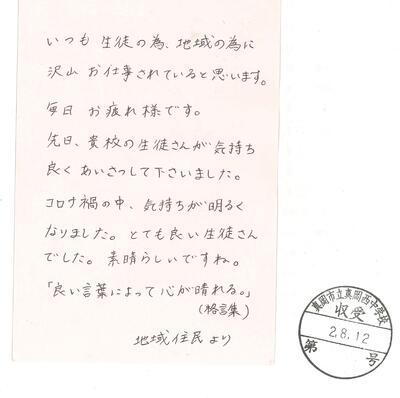 いつも 生徒の為、地域の為に
沢山 お仕事されていると思います。
毎日 お疲れ様です。
先日、貴校の生徒さんが気持ち
良く あいさつして下さいました。
コロナ禍の中、気持ちが明るく
なりました。とても良い生徒さん
でした。素晴らしいですね。
「良い言葉によって心が晴れる。」
(格言集)
地域住民より
真岡市立真岡西中学校
収受
2.8.12
第 号